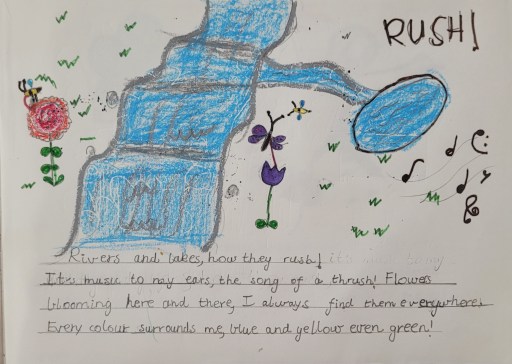 RUSH!
Rivers and lakes, how they rush!
Its music to my ears, the song of a thrush! Flowers
blooming here and there, I always find them everywhere.
Every colour surrounds me, blue and yellow even green!